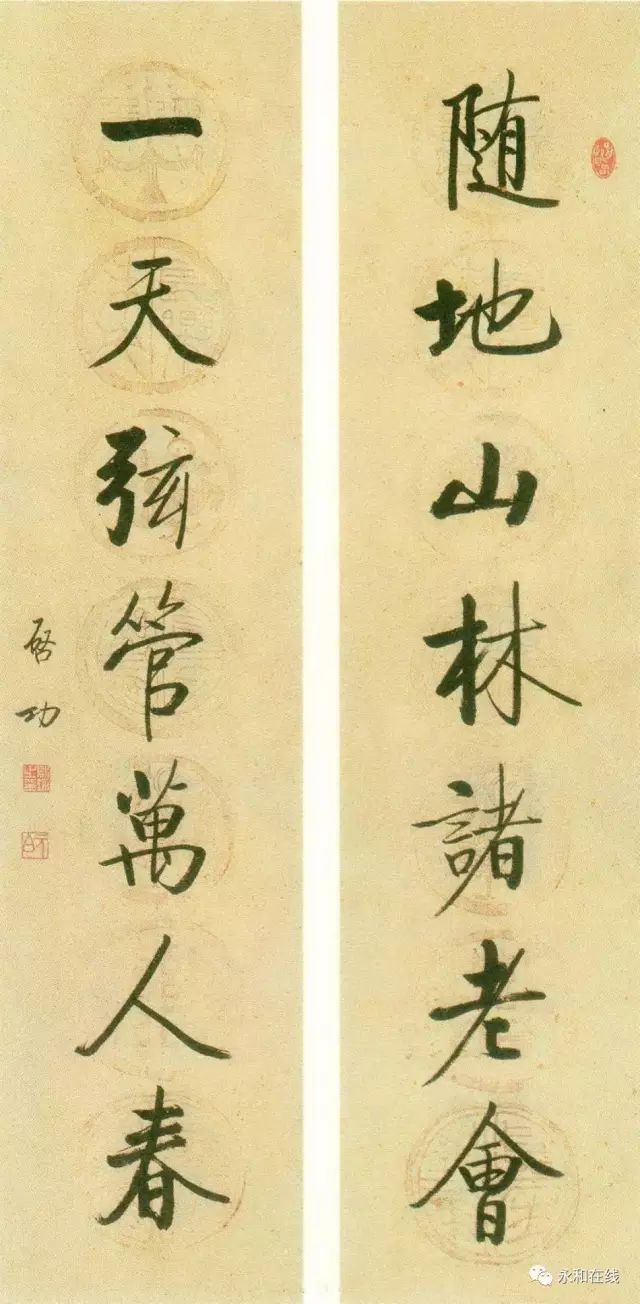 随地山林諸老會
一天弦管萬人春
启功
永和在线